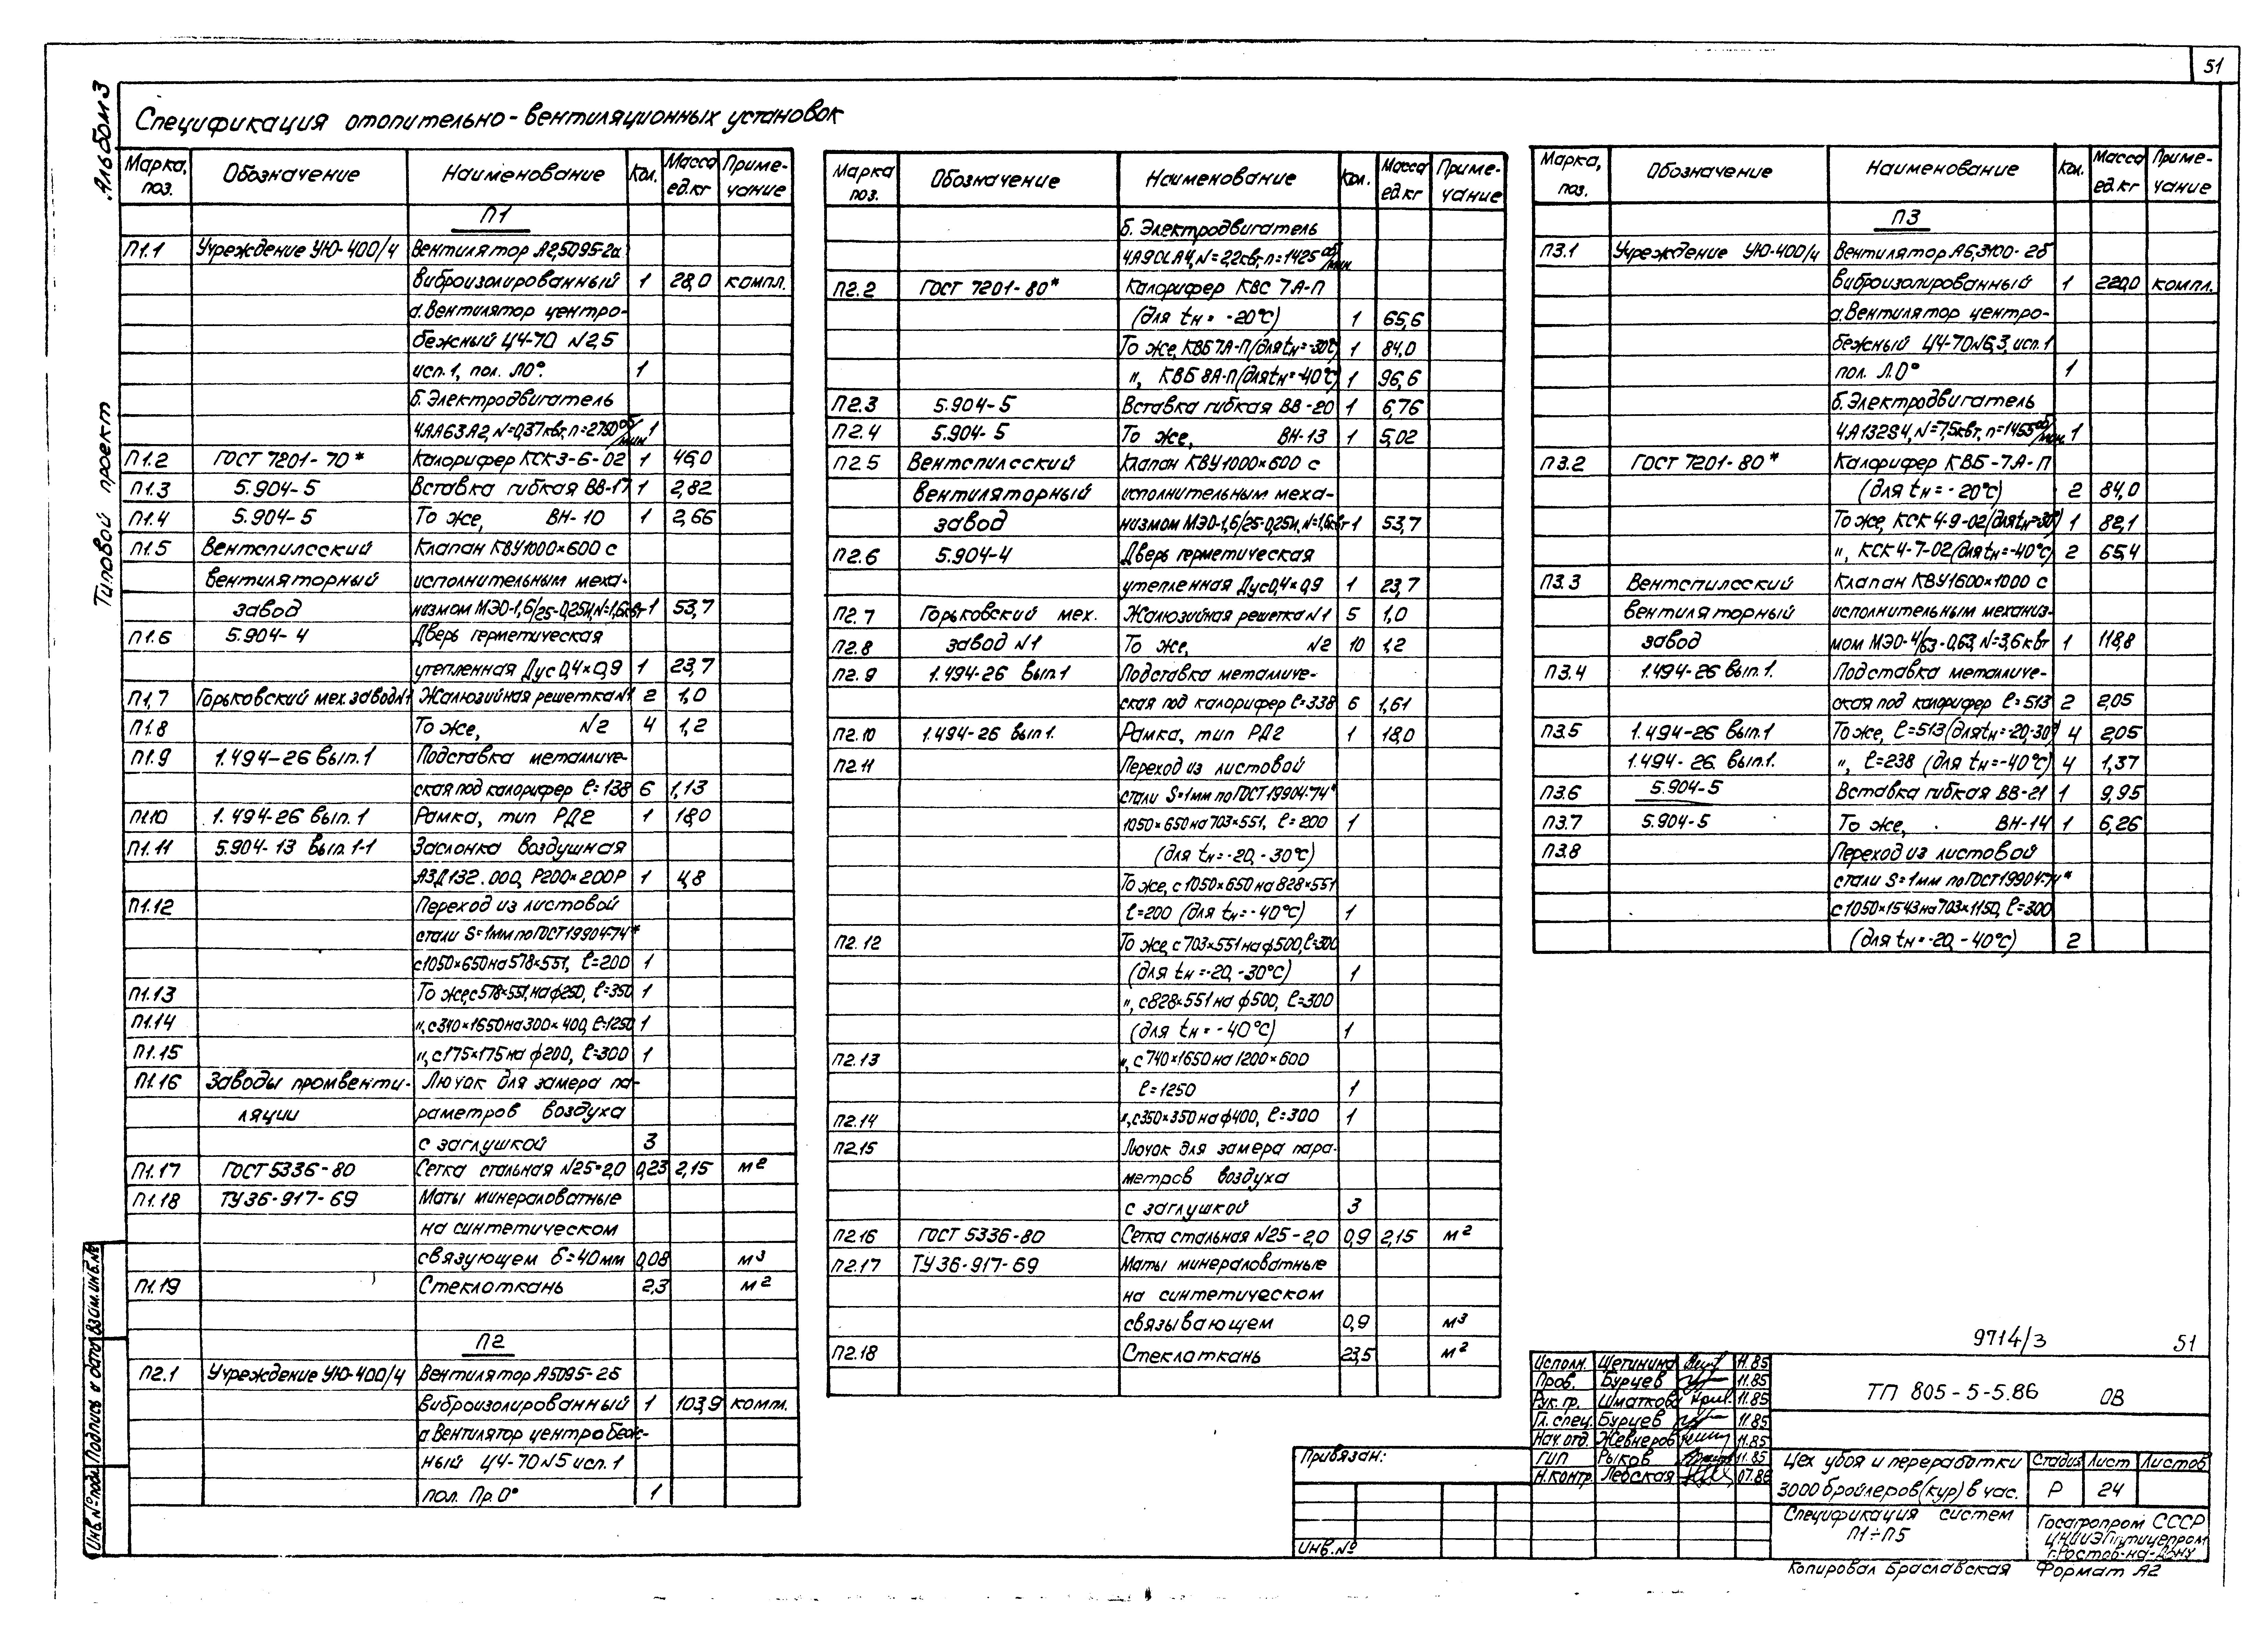 51
Альбом 3
Типовой проект
Спецификация отопительно-вентиляционных установок
Марка, поз. Обозначение Наименование Кол. Масса ед.кг Приме-чание
П1
П1.1 Учреждение УЮ-400/4 Вентилятор А2,5095-2а
виброизолированный 1 28,0 компл.
а.Вентилятор центро-
бежный Ц4-70 №2,5
исп.1, пол. Л0°. 1
б.Электродвигатель
4АА63А2, N=0,37квт, n=2750об/мин 1
П1.2 ГОСТ 7201-70* Калорифер КСК3-6-02 1 46,0
П1.3 5.904-5 Вставка гибкая ВВ-17 1 2,82
П1.4 5.904-5 То же, ВН-10 1 2,66
П1.5 Вентспилсский Клапан КВУ1000×600 с
вентиляторный исполнительным меха-
завод низмом МЭО-1,6/25-0,25И, N=1,6квт 1 53,7
П1.6 5.904-4 Дверь герметическая
утепленная Дус 0,4×0,9 1 23,7
П1,7 Горьковский мех.завод№1 Жалюзийная решетка№1 2 1,0
П1.8 То же, №2 4 1,2
П1.9 1.494-26 вып.1 Подставка металличе-
ская под калорифер ℓ=138 6 1,13
П1.10 1.494-26 вып.1 Рамка, тип РД2 1 18,0
П1.11 5.904-13 вып.1-1 Заслонка воздушная
АЗД132.000, Р200×200Р 1 4,8
П1.12 Переход из листовой
стали S=1мм по ГОСТ19904-74*
с1050×650на578×551, ℓ=200 1
П1.13 То же,с578×551,на ф250, ℓ=350 1
П1.14 ", с310×1650на300×400, ℓ=1250 1
П1.15 ", с175×175на ф200, ℓ=300 1
П1.16 Заводы промвенти- Лючок для замера па-
ляции раметров воздуха
с заглушкой 3
П1.17 ГОСТ5336-80 Сетка стальная №25-2,0 0,23 2,15 м²
П1.18 ТУ36-917-69 Маты минераловатные
на синтетическом
связующем δ=40мм 0,08 м³
П1.19 Стеклоткань 2,3 м²
П2
П2.1 Учреждение УЮ-400/4 Вентилятор А5095-2б
виброизолированный 1 103,9 компл.
а.Вентилятор центробеж-
ный Ц4-70№5 исп.1
пол. Пр.0° 1
Марка поз. Обозначение Наименование Кол. Масса ед.кг Приме-чание
б. Электродвигатель
4А90LА4, N=2,2квт, n=1425об/мин
П2.2 ГОСТ 7201-80* Калорифер КВС 7А-П
(для tн= -20°С) 1 65,6
То же, КВБ7А-П(для tн=-30°С) 1 84,0
", КВБ 8А-П(для tн=-40°С) 1 96,6
П2.3 5.904-5 Вставка гибкая ВВ-20 1 6,76
П2.4 5.904-5 То же, ВН-13 1 5,02
П2.5 Вентспилсский Клапан КВУ1000×600 с
вентиляторный исполнительным меха-
завод низмом МЭО-1,6/25-0,25И, N=1,6квт 1 53,7
П2.6 5.904-4 Дверь герметическая
утепленная Дус0,4×0,9 1 23,7
П2.7 Горьковский мех. Жалюзийная решетка№1 5 1,0
П2.8 завод №1 То же, №2 10 1,2
П2.9 1.494-26 вып.1 Подставка металличе-
ская под калорифер ℓ=338 6 1,61
П2.10 1.494-26 вып.1. Рамка, тип РД2 1 18,0
П2.11 Переход из листовой
стали S=1мм по ГОСТ19904-74*
1050×650на703×551, ℓ=200 1
(для tн=-20,-30°С)
То же, с1050×650на828×551
ℓ=200 (для tн=-40°С) 1
П2.12 То же, с703×551на ф500,ℓ=300
(для tн=-20,-30°С) 1
", с828×551на ф500, ℓ=300
(для tн=-40°С) 1
П2.13 ", с740×1650на1200×600
ℓ=1250 1
П2.14 ", с350×350на ф400, ℓ=300 1
П2.15 Лючок для замера пара-
метров воздуха
с заглушкой 3
П2.16 ГОСТ 5336-80 Сетка стальная №25-2,0 0,9 2,15 м²
П2.17 ТУ36-917-69 Маты минераловатные
на синтетическом
связывающем 0,9 м³
П2.18 Стеклоткань 23,5 м²
Марка, поз. Обозначение Наименование Кол. Масса ед.кг Приме-чание
П3
П3.1 Учреждение УЮ-400/4 Вентилятор А6,3100-2б
виброизолированный 1 220,0 компл.
а.Вентилятор центро-
бежный Ц4-70№6,3, исп.1
пол. Л.0° 1
б.Электродвигатель
4А132S4, N=7,5квт, n=1455об/мин. 1
П3.2 ГОСТ 7201-80* Калорифер КВБ-7А-П
(для tн=-20°С) 2 84,0
То же, КСК4-9-02(для tн=-30°) 1 82,1
", КСК4-7-02(для tн=-40°С) 2 65,4
П3.3 Вентспилсский Клапан КВУ1600×1000 с
вентиляторный исполнительным механиз-
завод мом МЭО-4/63-0,63, N=3,6квт 1 118,8
П3.4 1.494-26 вып.1. Подставка металличе-
ская под калорифер ℓ=513 2 2,05
П3.5 1.494-26 вып.1 То же, ℓ=513(для tн=-20,-30°) 4 2,05
1.494-26. вып.1. ", ℓ=238 (для tн=-40°С) 4 1,37
П3.6 5.904-5 Вставка гибкая ВВ-21 1 9,95
П3.7 5.904-5 То же, ВН-14 1 6,26
П3.8 Переход из листовой
стали S=1мм по ГОСТ19904-74*
с1050×1543на703×1150, ℓ=300
(для tн=-20,-40°С) 2
9714/3 51
Исполн. Щетинина 11.85
Пров. Бурцев 11.85
Рук.гр. Шматкова 11.85
Гл.спец. Бурцев 11.85
Нач.отд. Жевнеров 11.85
ГИП Рыков 11.85
Н.контр. Левская 07.86
ТП 805-5-5.86 ОВ
Цех убоя и переработки
3000 бройлеров(кур) в час.
Стадия Лист Листов
Р 24
Спецификация систем
П1÷П5
Госагропром СССР
ЦНИИЭПптицепром
г.Ростов-на-Дону
Привязан:
Инв.№
Копировал Браславская Формат А2
Инв.№подл. Подпись и дата Взам.инв.№